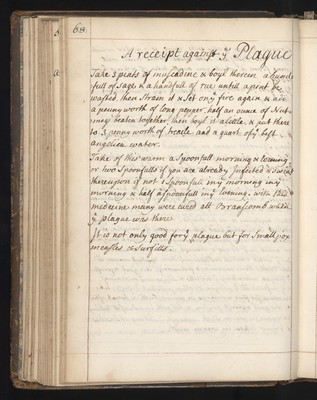 68
A receipt against ye Plague
Take 3 pints of muscadine & boyl therein a hand
full of sage & a handfull of rue untill a pint be
wasted then strain it & set on ye fire again & add
a penny worth of long pepper half an ounce of Nut
megs beaten together then boyl it a little & put there
to 3 penny worth of treacle and a quart of ye best
angelica water.
Take of this warm a Spoonfull morning & evening
or two Spoonfulls if you are already Infected & sweat
thereupon if not a Spoonfull in ye morning
morning & half a spoonfull in ye evening, with this
medecine many were cured att Branscomb when
ye plague was there
It is not only good for ye plague but for Small pox
measles & Surfitts.